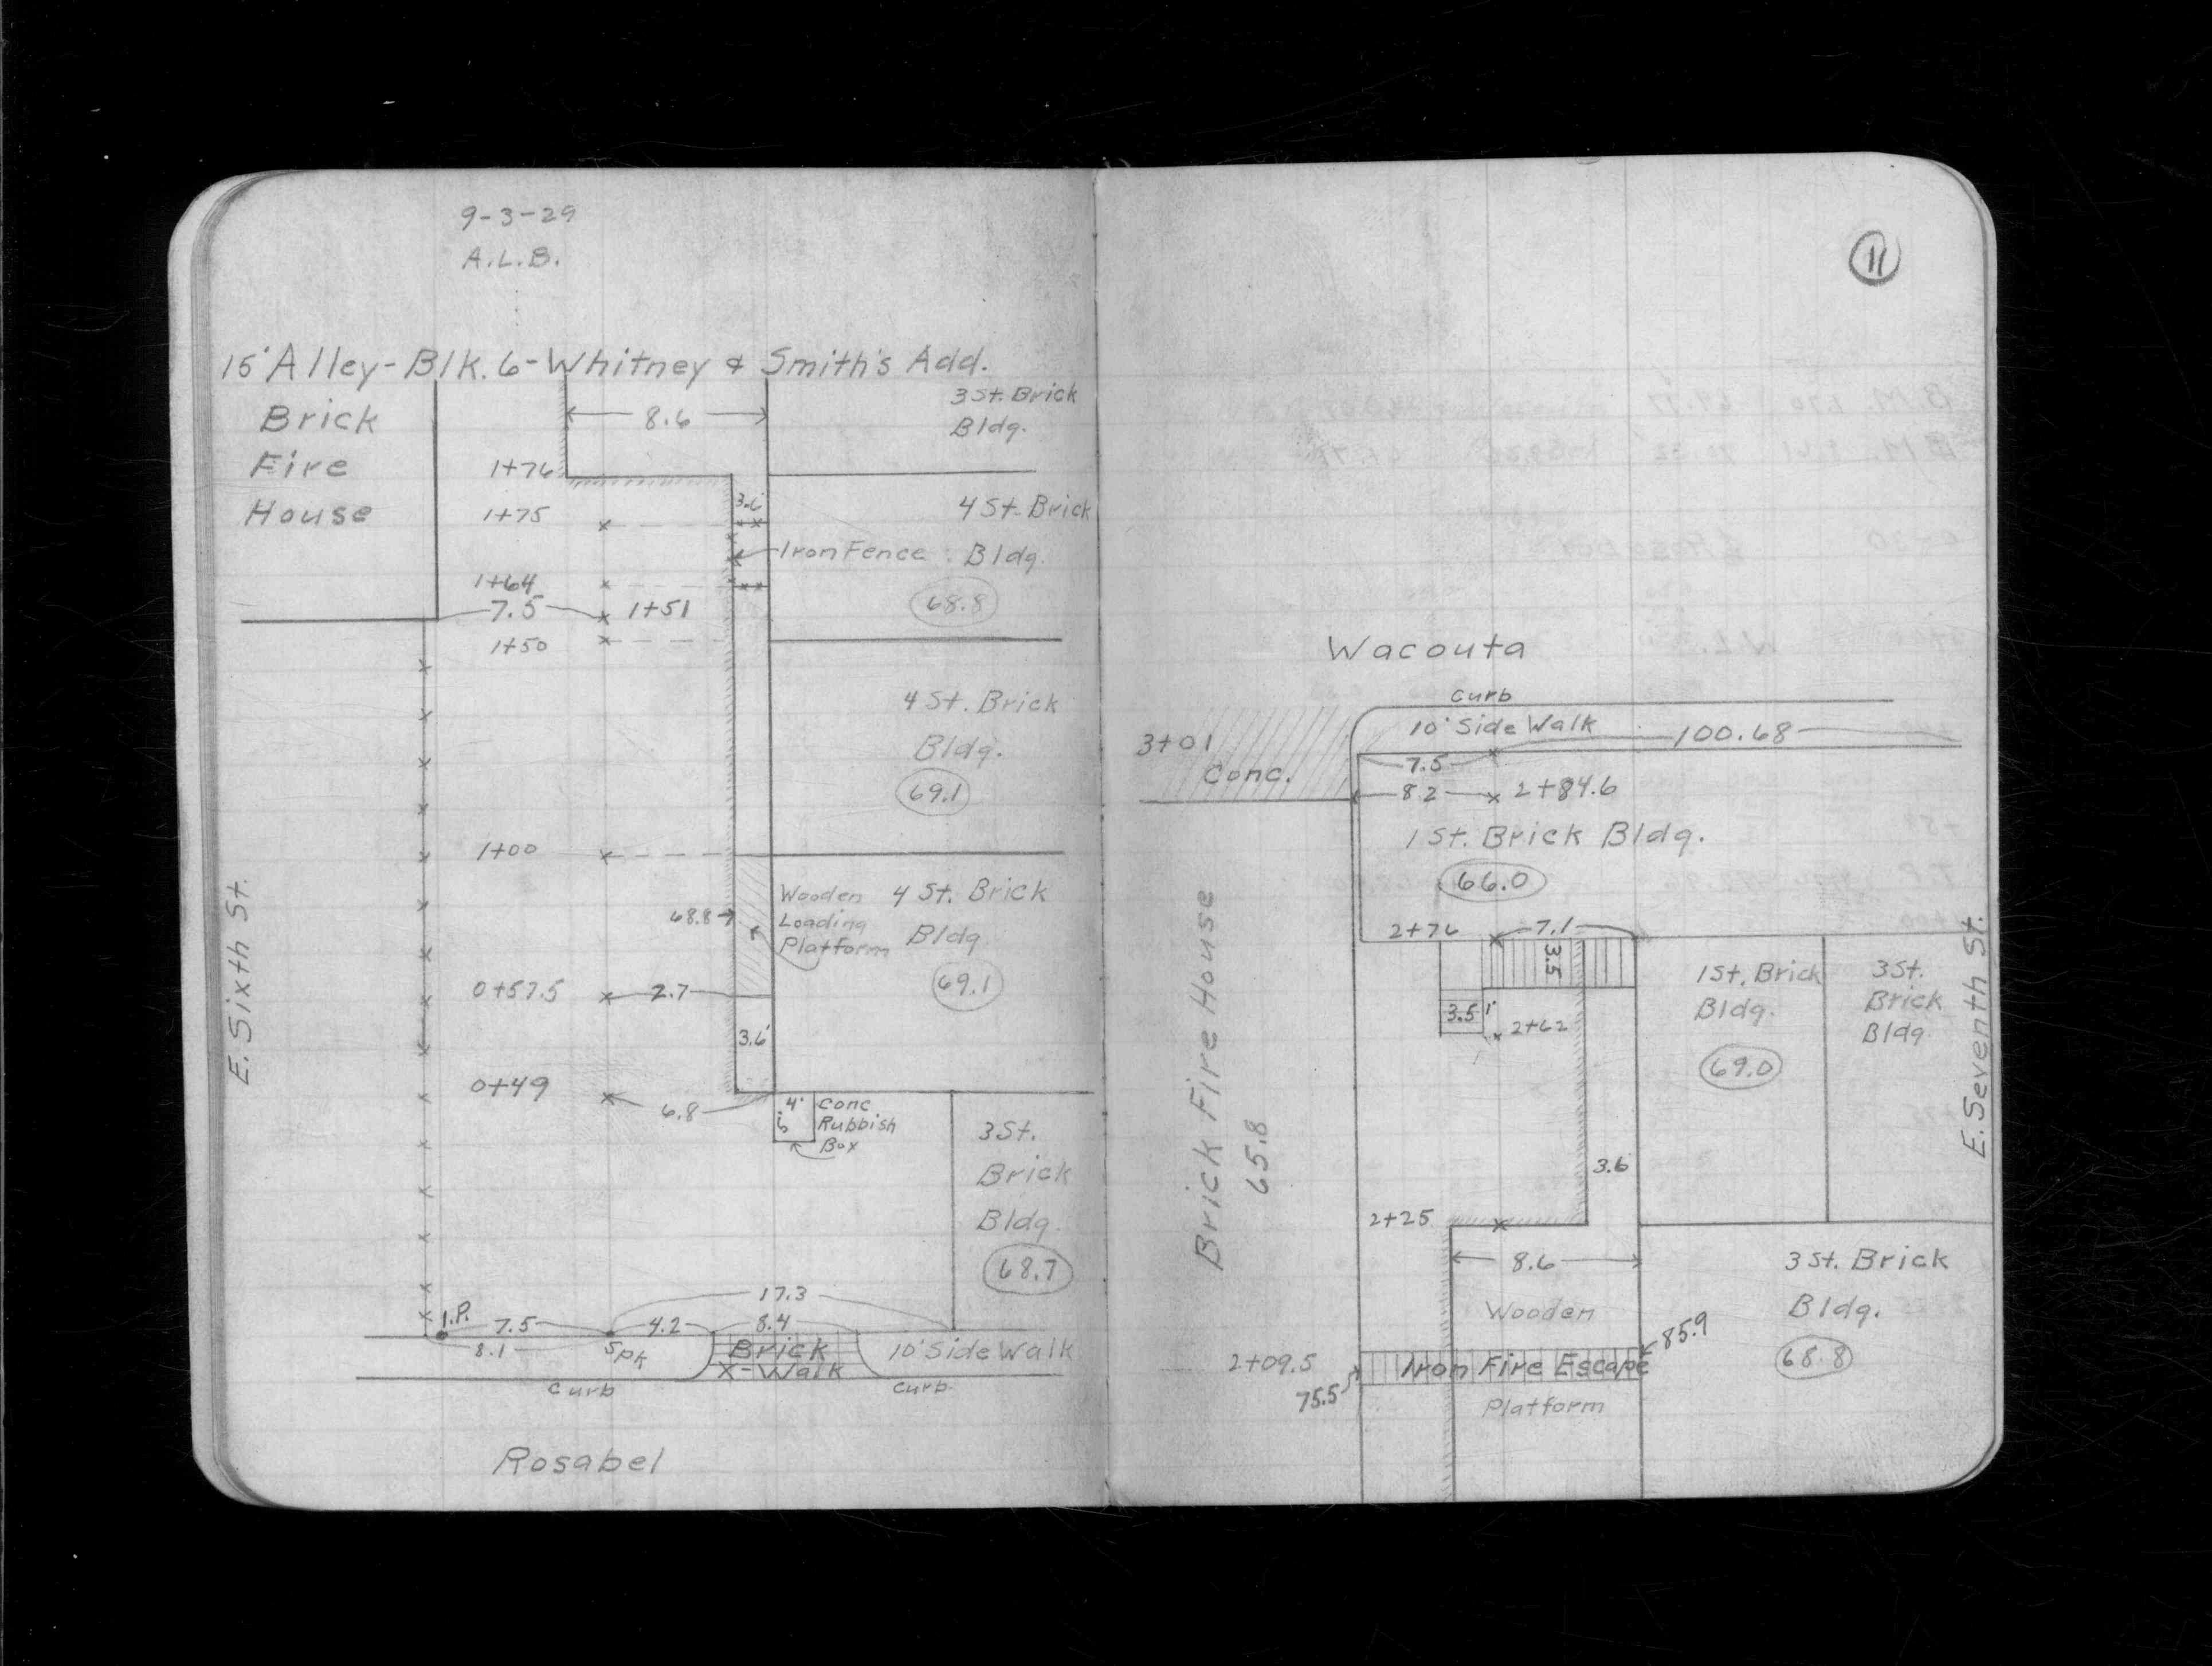 9-3-29
A.L.B.
15' Alley-Blk. 6-Whitney & Smith's Add.
Brick
Fire
House
8.6
3 St. Brick
Bldg.
1+76
1+75
3.6'
4 St. Brick
Iron Fence
Bldg.
68.8
1+64
7.5
1+51
1+50
4 St. Brick
Bldg.
69.1
1+00
E. Sixth St.
68.8
Wooden
Loading
Platform
4 St. Brick
Bldg
69.1
0+57.5
2.7
3.6'
0+49
6.8
4'
5'
Conc
Rubbish
Box
3 St.
Brick
Bldg.
68.7
17.3
I.P.
7.5
4.2
8.4
8.1
Spk
Brick
X-Walk
10' Side Walk
Curb
Curb
Rosabel
11
Wacouta
Curb
10' Side Walk
100.68
3+01
Conc.
7.5
8.2
2+84.6
1 St. Brick Bldg.
66.0
2+76
7.1
3.5
3.5
1'
2+62
1 St. Brick
Bldg.
69.0
3 St.
Brick
Bldg.
E. Seventh St.
Brick Fire House
65.8
3.6
2+25
8.6
Wooden
3 St. Brick
Bldg.
68.8
85.9
2+09.5
Iron Fire Escape
75.5
Platform